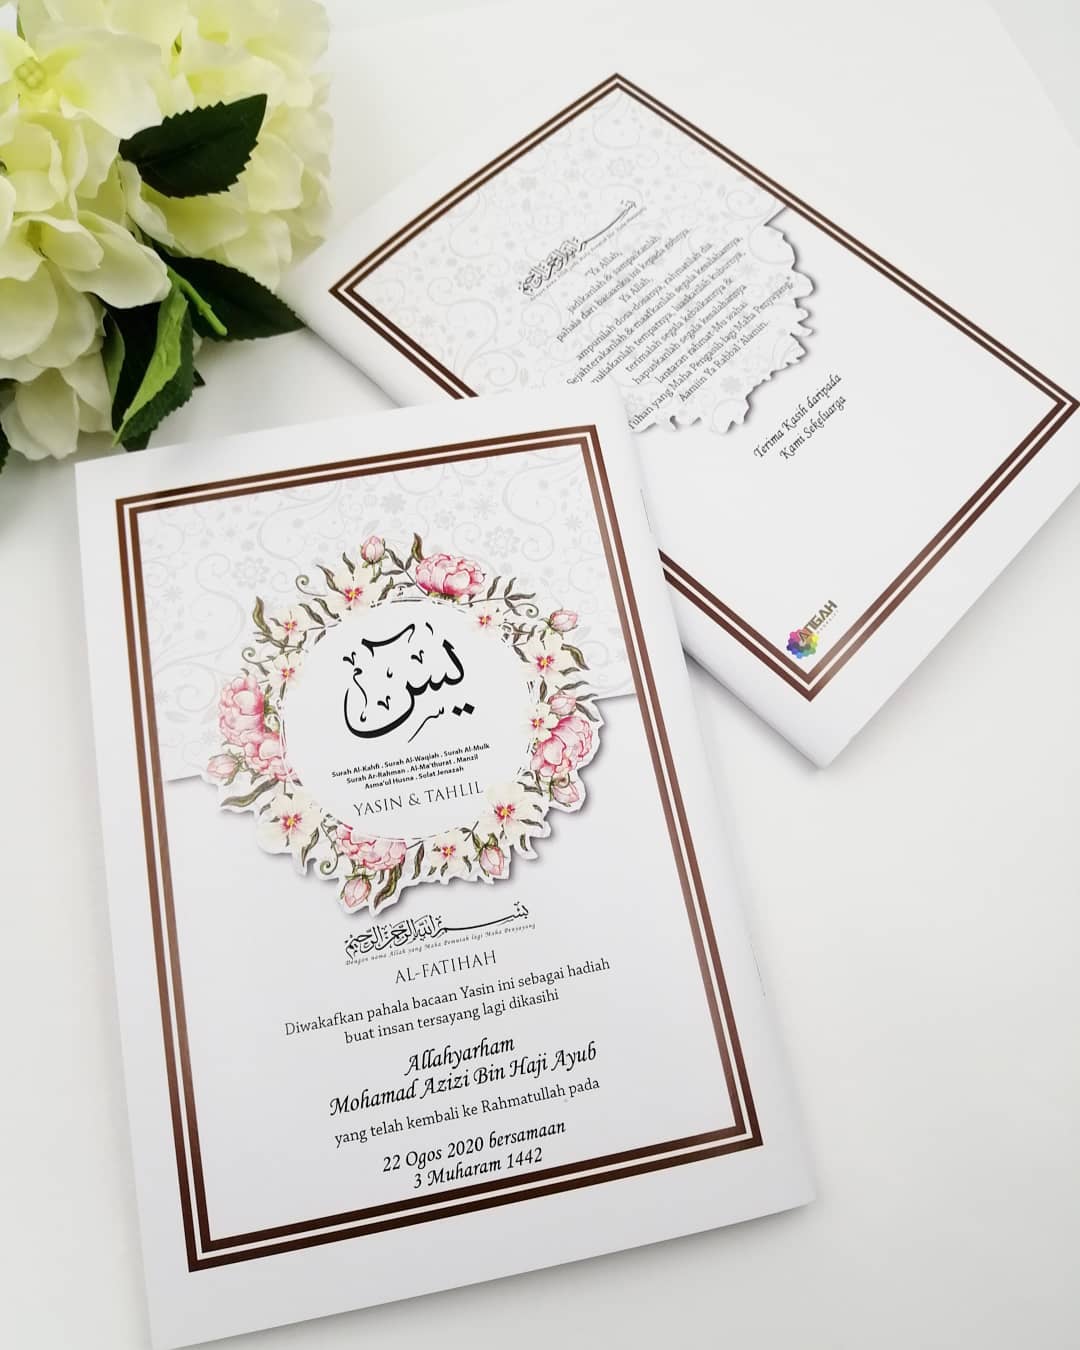 يس
Surah Al-Kahfi . Surah Al-Waqiah . Surah Al-Mulk
Surah Ar-Rahman . Al-Ma'thurat . Manzil
Asma'ul Husna . Solat Jenazah
YASIN & TAHLIL
بسم الله الرحمن الرحيم
Dengan nama Allah yang Maha Pemurah lagi Maha Penyayang
AL-FATIHAH
Diwakafkan pahala bacaan Yasin ini sebagai hadiah
buat insan tersayang lagi dikasihi
Allahyarham
Mohamad Azizi Bin Haji Ayub
yang telah kembali ke Rahmatullah pada
22 Ogos 2020 bersamaan
3 Muharam 1442
بسم الله الرحمن الرحيم
Dengan nama Allah yang Maha Pemurah lagi Maha Penyayang
"Ya Allah,
jadikanlah & sampaikanlah
pahala dari bacaanku ini kepada rohnya.
Ya Allah,
ampunilah dosa-dosanya, rahmatilah dia,
Sejahterakanlah & maafkanlah segala kesalahannya,
muliakanlah tempatnya, luaskanlah kuburnya,
terimalah segala kebaikannya &
hapuskanlah segala kesalahannya
lantaran rahmat-Mu wahai
Tuhan yang Maha Pengasih lagi Maha Penyayang.
Aamiin Ya Rabbal Alamin.
Terima Kasih daripada
Kami Sekeluarga
ANGAH